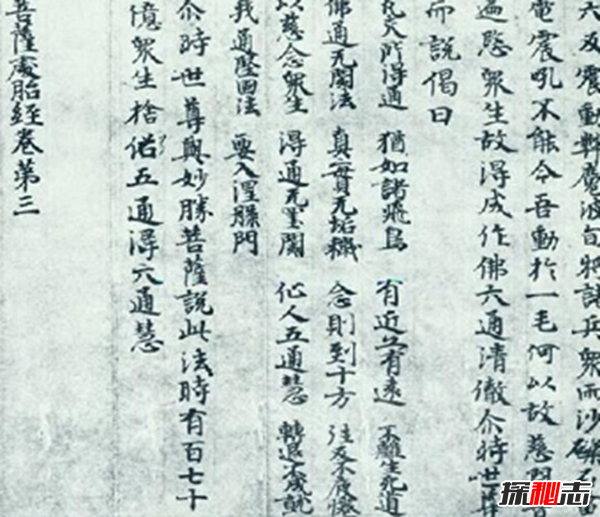 六反震動弊魔波旬將諸兵衆雨沙礫石
電震吼不能令吾動於一毛何以故慈
遍愍衆生故得成作佛六通清徹尒時世
而説偈曰
凡夫所得通 猶如諸飛鳥 有近亦有遠 不離生死道
佛通无閡法 真實无垢穢 念則到十方 往反不疲惓
以慈念衆生 得通无罣閡 仙人五通慧 轉退不成就
我通堅固法 要入涅槃門
尒時世尊與妙勝菩薩説此法時有百七十
億衆生捨俗五通得六通慧
菩薩處胎經卷第三
探秘志